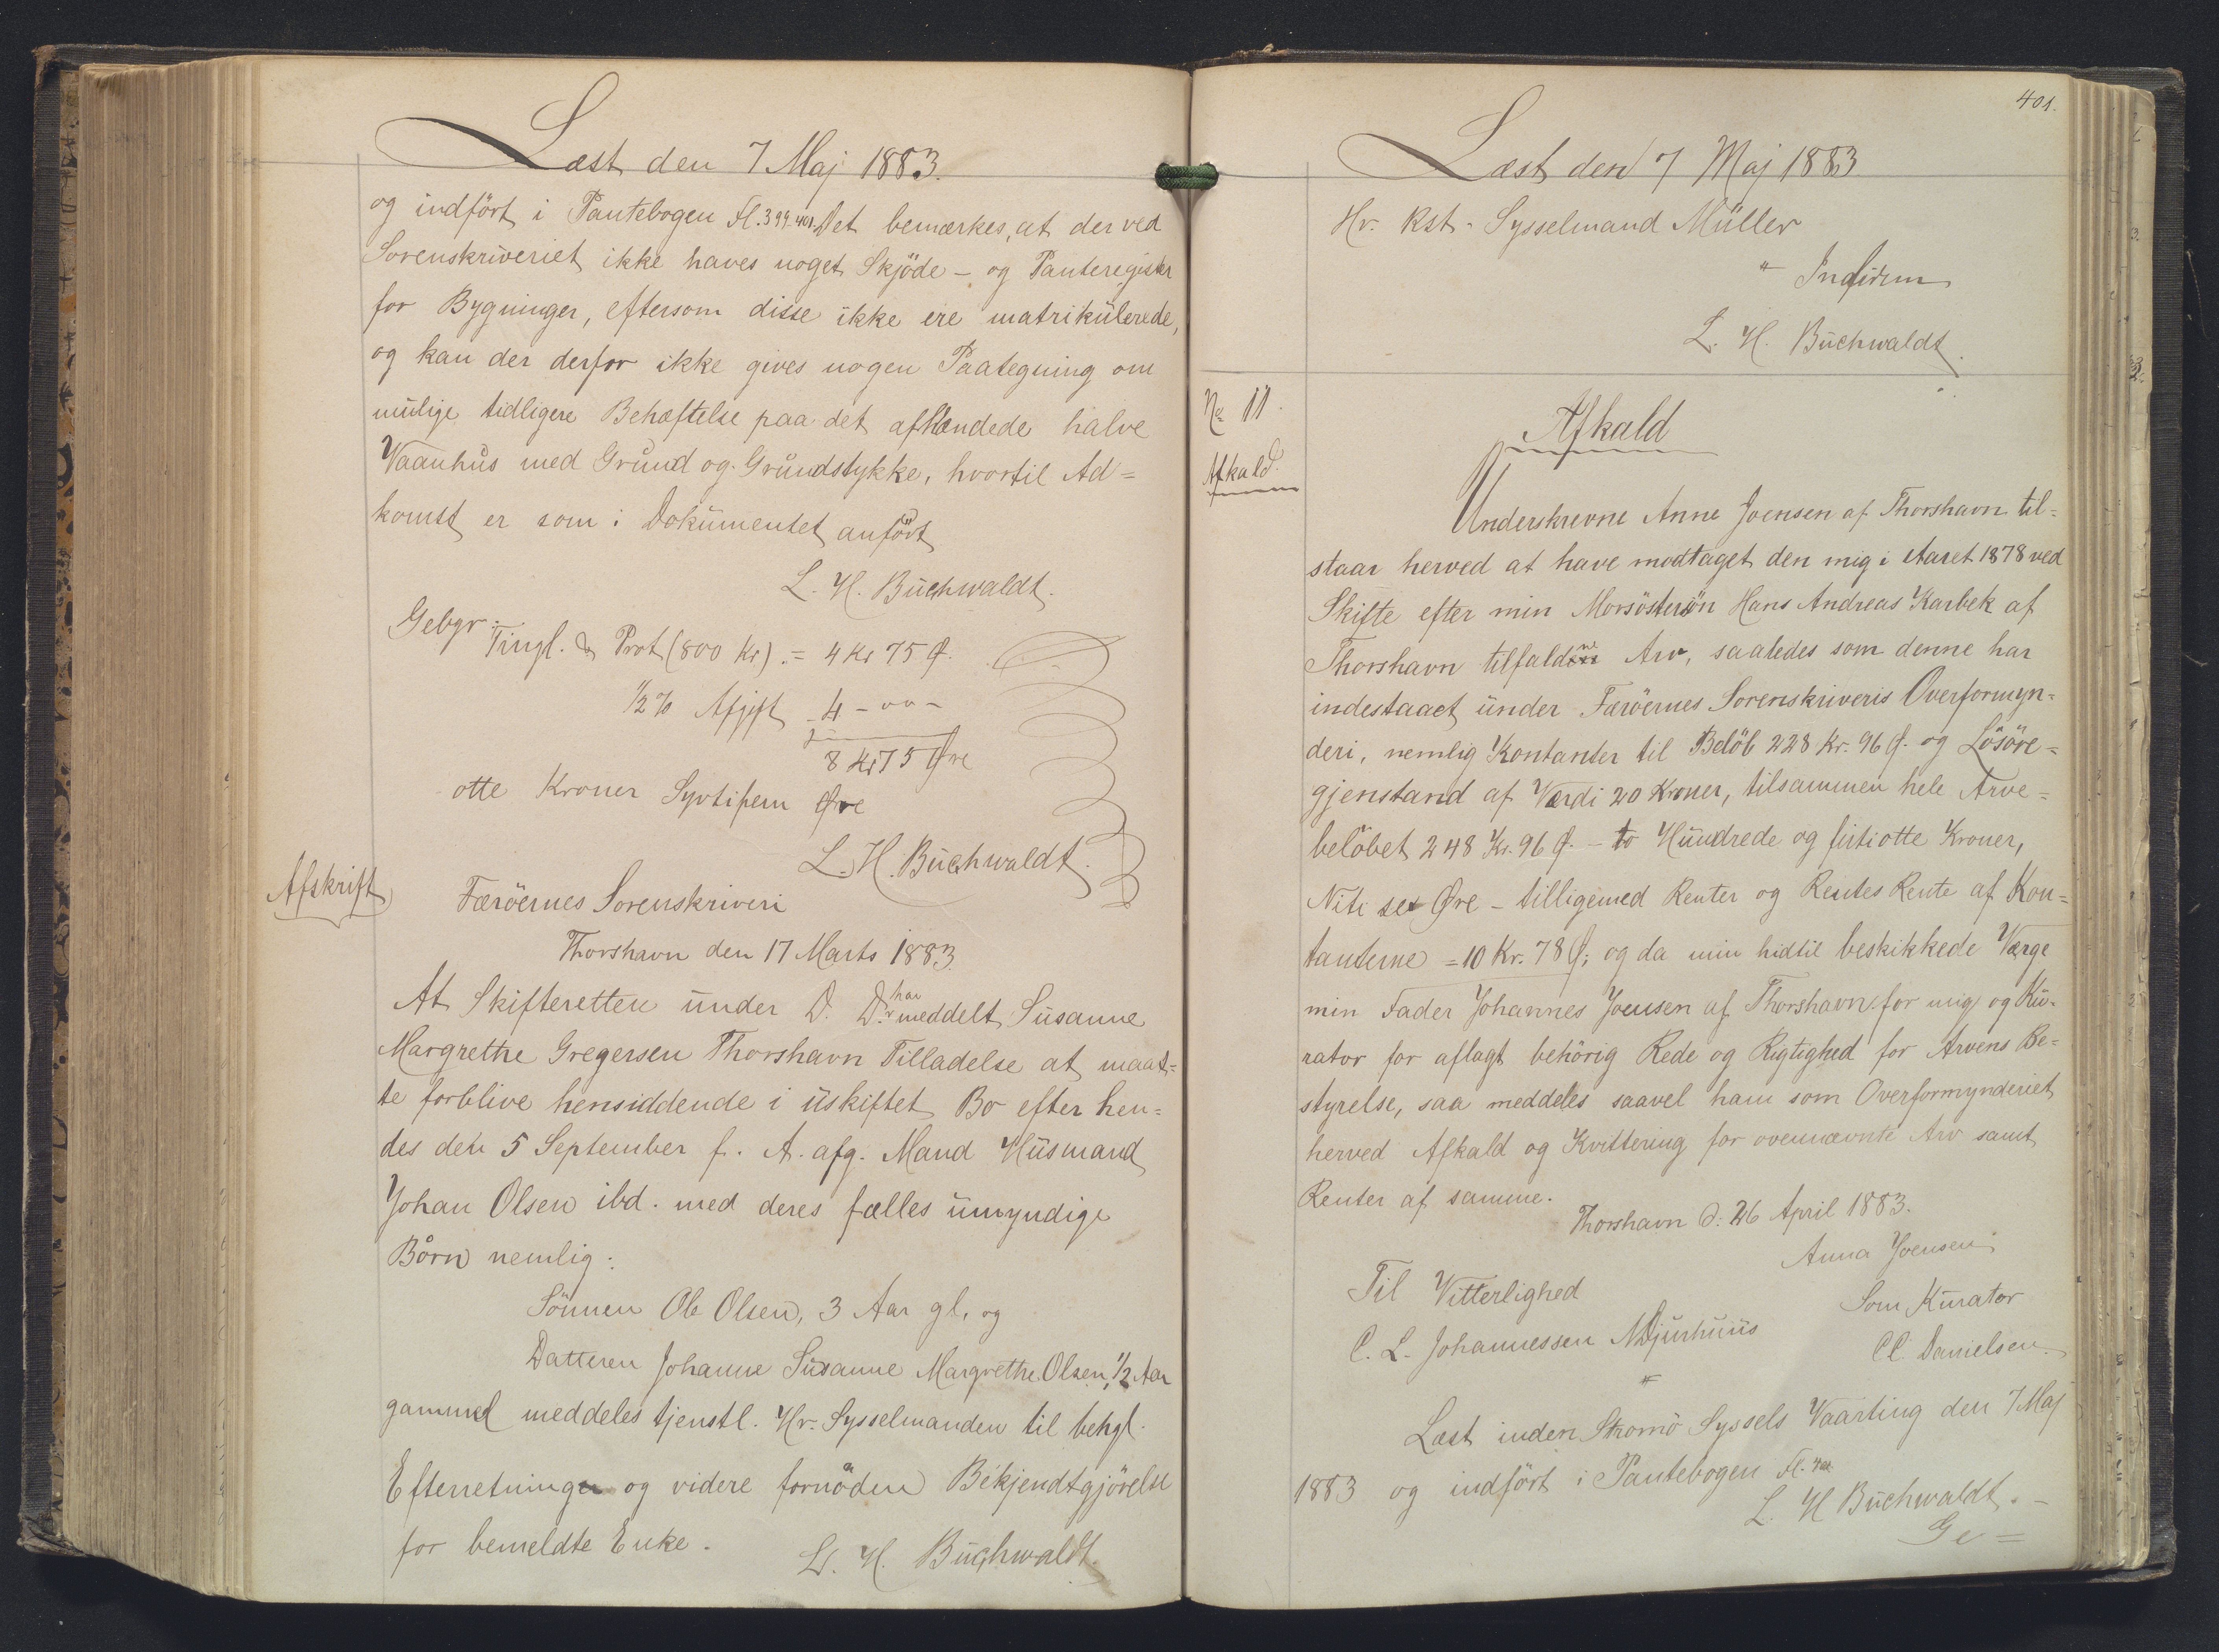 Læst den 7 Maj 1883.
og indført i Pantebogen Fl. 399-401. Det bemærkes, at der ved
Sorenskriveriet ikke haves noget Skjöde- og Panteregister
for Bygninger, eftersom disse ikke ere matrikülerede,
og kan der derfor ikke gives nogen Paategning om
mulige tidligere Behæftelse paa det afhændede halve
Vaanhus med Grund og Grundstykke, hvortil Ad=
komst er som i Dokumentet anfört
L. H. Buchwaldt.
Gebyr:
Tingl. & Prot (800 Kr) = 4 Kr 75 Ø.
1/2 % Afgift - 4 - " -
8 Kr 75 Øre
otte Kroner Syvtifem Øre
L. H. Buchwaldt.
Afskrift
Færöernes Sorenskriveri
Thorshavn den 17 Marts 1883.
At Skifteretten under D. D. har meddelt Susanne
Margrethe Gregersen Thorshavn Tilladelse at maat=
te forblive hensiddende i uskiftet Bo efter hen=
des den 5 September f. A. afg. Mand Husmand
Johan Olsen ibd. med deres fælles umyndige
Börn nemlig:
Sönnen Ole Olsen, 3 Aar gl. og
Datteren Johanne Susanne Margrethe Olsen, 1/2 Aar
gammel meddeles tjenstl. Hr. Sysselmanden til behgl.
Efterretninger og videre fornöden Bekjendtgjörelse
for bemeldte Enke.
L. H. Buchwaldt.
401.
Læst den 7 Maj 1883
Hr. Kst. Sysselmand Müller
L. H. Buchwaldt.
No 11.
Afkald.
Afkald
Underskrevne Anne Joensen af Thorshavn til=
staar herved at have modtaget den mig i Aaret 1878 ved
Skifte efter min Morsöstersön Hans Andreas Karbek af
Thorshavn tilfaldne Arv, saaledes som denne har
indestaaet under Færöernes Sorenskriveris Overformyn=
deri, nemlig Kontanter til Belöb 228 Kr. 96 Ø. og Lösöre=
gjenstand af Værdi 20 Kroner, tilsammen hele Arve=
belöbet 248 Kr. 96 Ø. - to Hundrede og firtiotte Kroner,
Niti sex Øre - tilligemed Renter og Rentes Rente af Kon=
tanterne = 10 Kr. 78 Ø; og da min hidtil beskikkede Værge
min Fader Johannes Joensen af Thorshavn for mig og Ku=
rator for aflagt behörig Rede og Rigtighed for Arvens Be=
styrelse, saa meddeles saavel ham som Overformynderiet
herved Afkald og Kvittering for ovennævnte Arv samt
Renter af samme.
Thorshavn d: 26 April 1883.
Anna Joensen
Til Vitterlighed
Som Kurator
C. L. Johannessen M Djurhuus
Cl. Danielsen.
Læst inden Stromö Syssels Vaarting den 7 Maj
1883 og indfört i Pantebogen Fl. 401
L. H Buchwaldt. -
Ge=